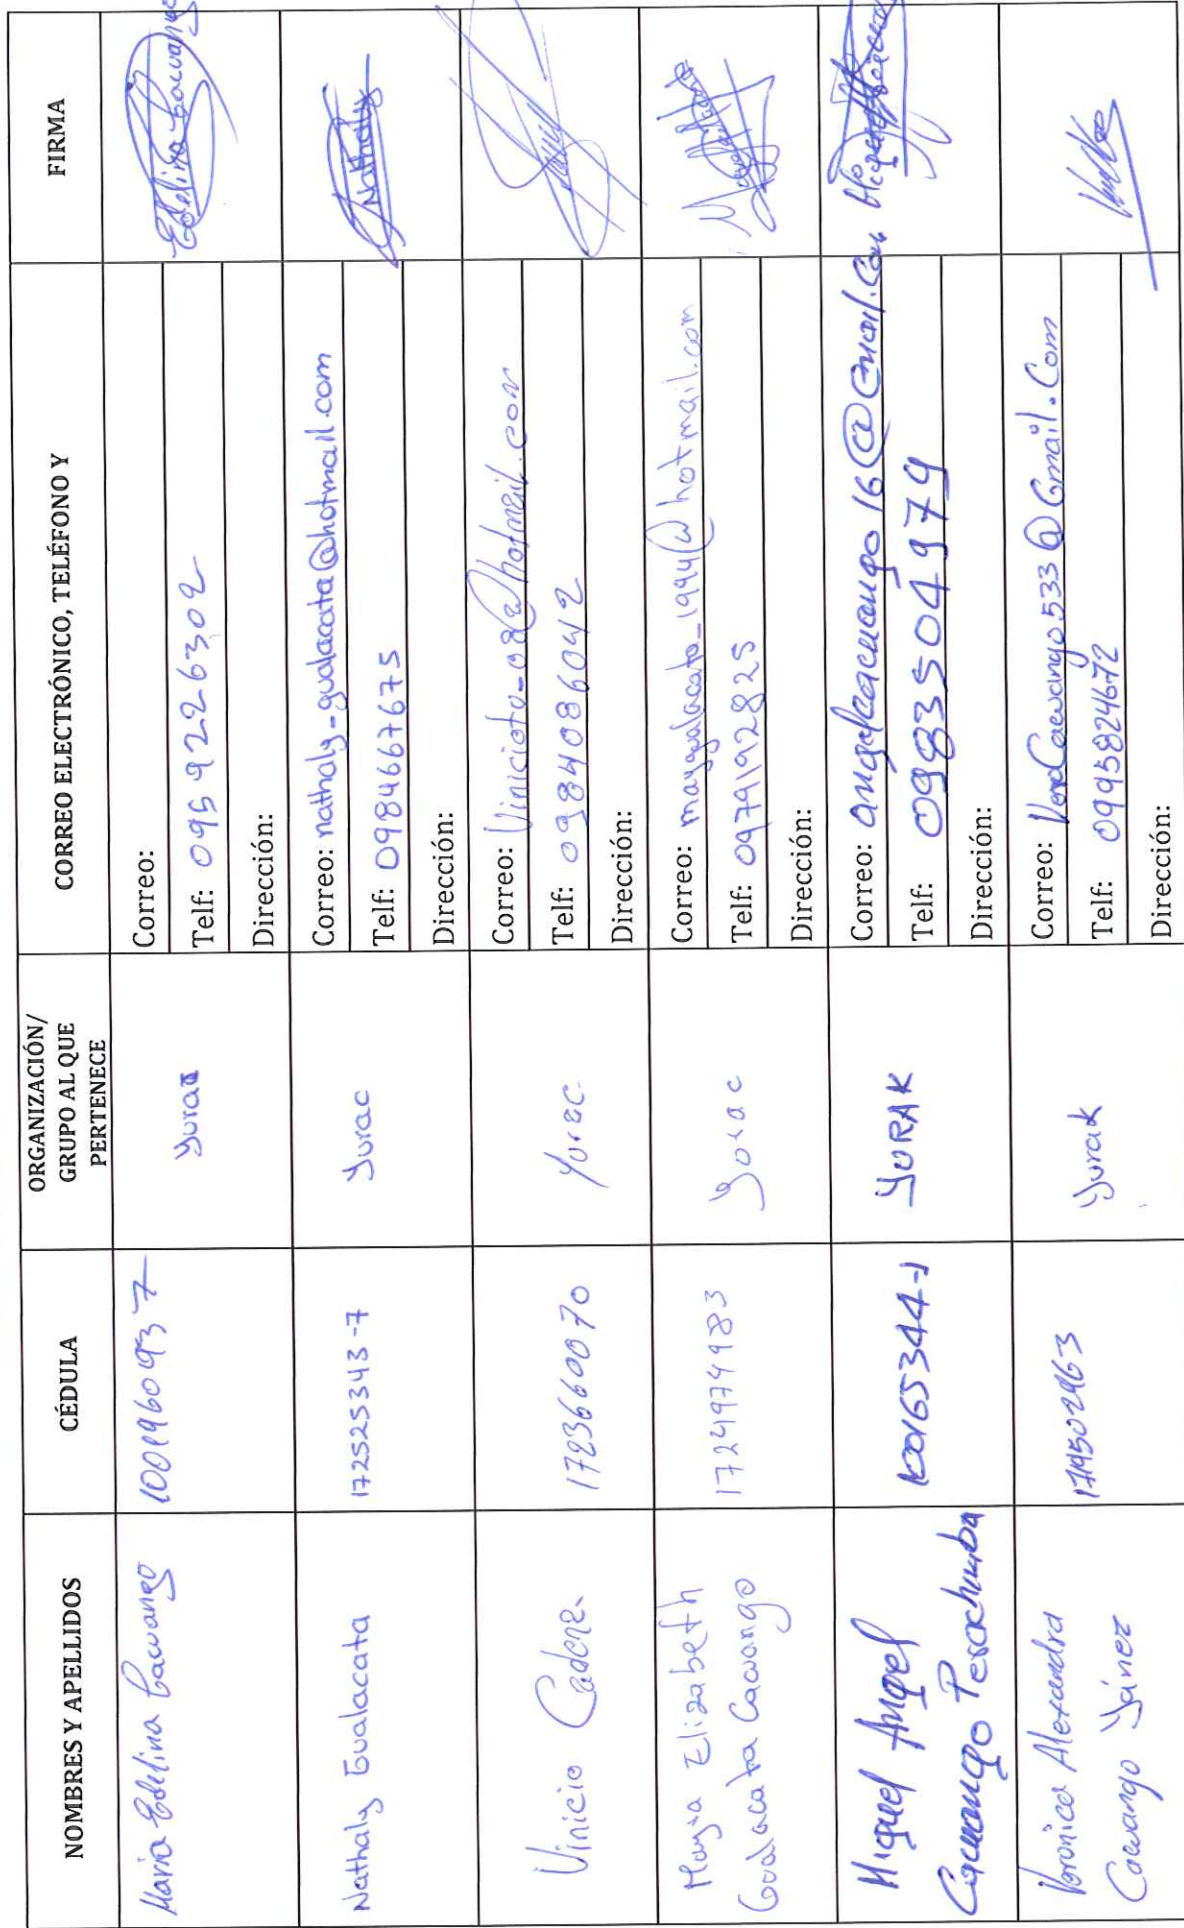 NOMBRES Y APELLIDOS
CÉDULA
ORGANIZACIÓN/
GRUPO AL QUE
PERTENECE
CORREO ELECTRÓNICO, TELÉFONO Y
FIRMA
Maria Edelina Cacuango
1001960937
Yurac
Correo:
Telf: 0959226302
Dirección:
Edelina Cacuango
Nathaly Gualacata
172525343-7
Yurac
Correo: nathaly-gualacata@hotmail.com
Telf: 0984667675
Dirección:
Nathaly
Vinicio Cadena
1723660070
Yurac
Correo: Viniciotu-02@hotmail.com
Telf: 0984086042
Dirección:
Mayra Elizabeth
Gualacata Cacuango
1724974983
Yurac
Correo: maygualacata_1994@hotmail.com
Telf: 0979192825
Dirección:
Miguel Angel
Cacuango Perachimba
100165344-1
YURAK
Correo: angelcacuango16@Gmail.Com
Telf: 0983504974
Dirección:
Veronica Alexandra
Cacuango Yánez
1714502463
Yurak
Correo: VeroCacuango533@Gmail.Com
Telf: 0995824672
Dirección: